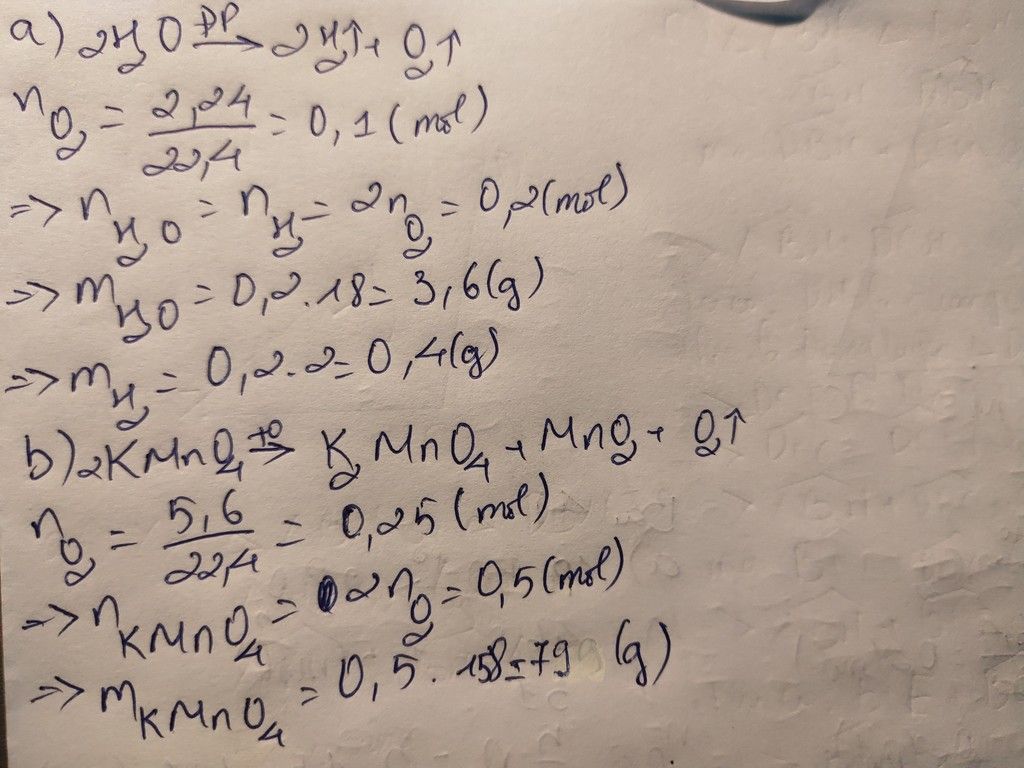 a) 2H₂O —ĐP→ 2H₂↑ + O₂↑
n_O₂ = 2,24/22,4 = 0,1 (mol)
=> n_H₂O = n_H₂ = 2n_O₂ = 0,2 (mol)
=> m_H₂O = 0,2 . 18 = 3,6 (g)
=> m_H₂ = 0,2 . 2 = 0,4 (g)
b) 2KMnO₄ —t⁰→ K₂MnO₄ + MnO₂ + O₂↑
n_O₂ = 5,6/22,4 = 0,25 (mol)
=> n_KMnO₄ = 2n_O₂ = 0,5 (mol)
=> m_KMnO₄ = 0,5 . 158 = 79 (g)